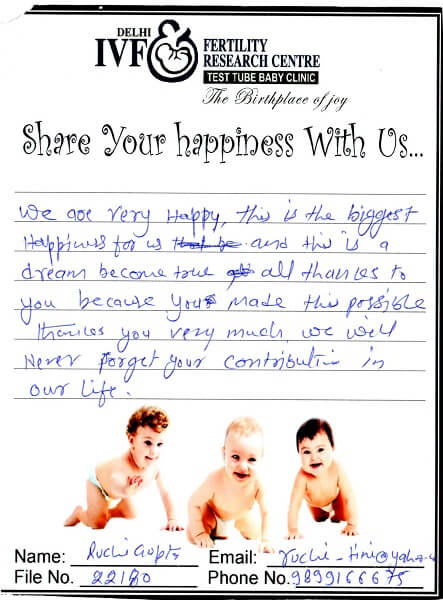 DELHI
IVF
FERTILITY
RESEARCH CENTRE
TEST TUBE BABY CLINIC
The Birthplace of joy
Share Your happiness With Us...
We are very Happy, this is the biggest
Happiness for us and this is a
dream become true all thanks to
you because You made this possible
thanks you very much we will
Never forget your contribution in
our life.
Name: Ruchi Gupta Email:
File No. 22180 Phone No. 9899166675